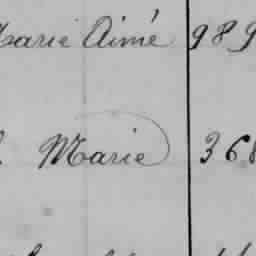 Marie Aimé 989
Marie 368